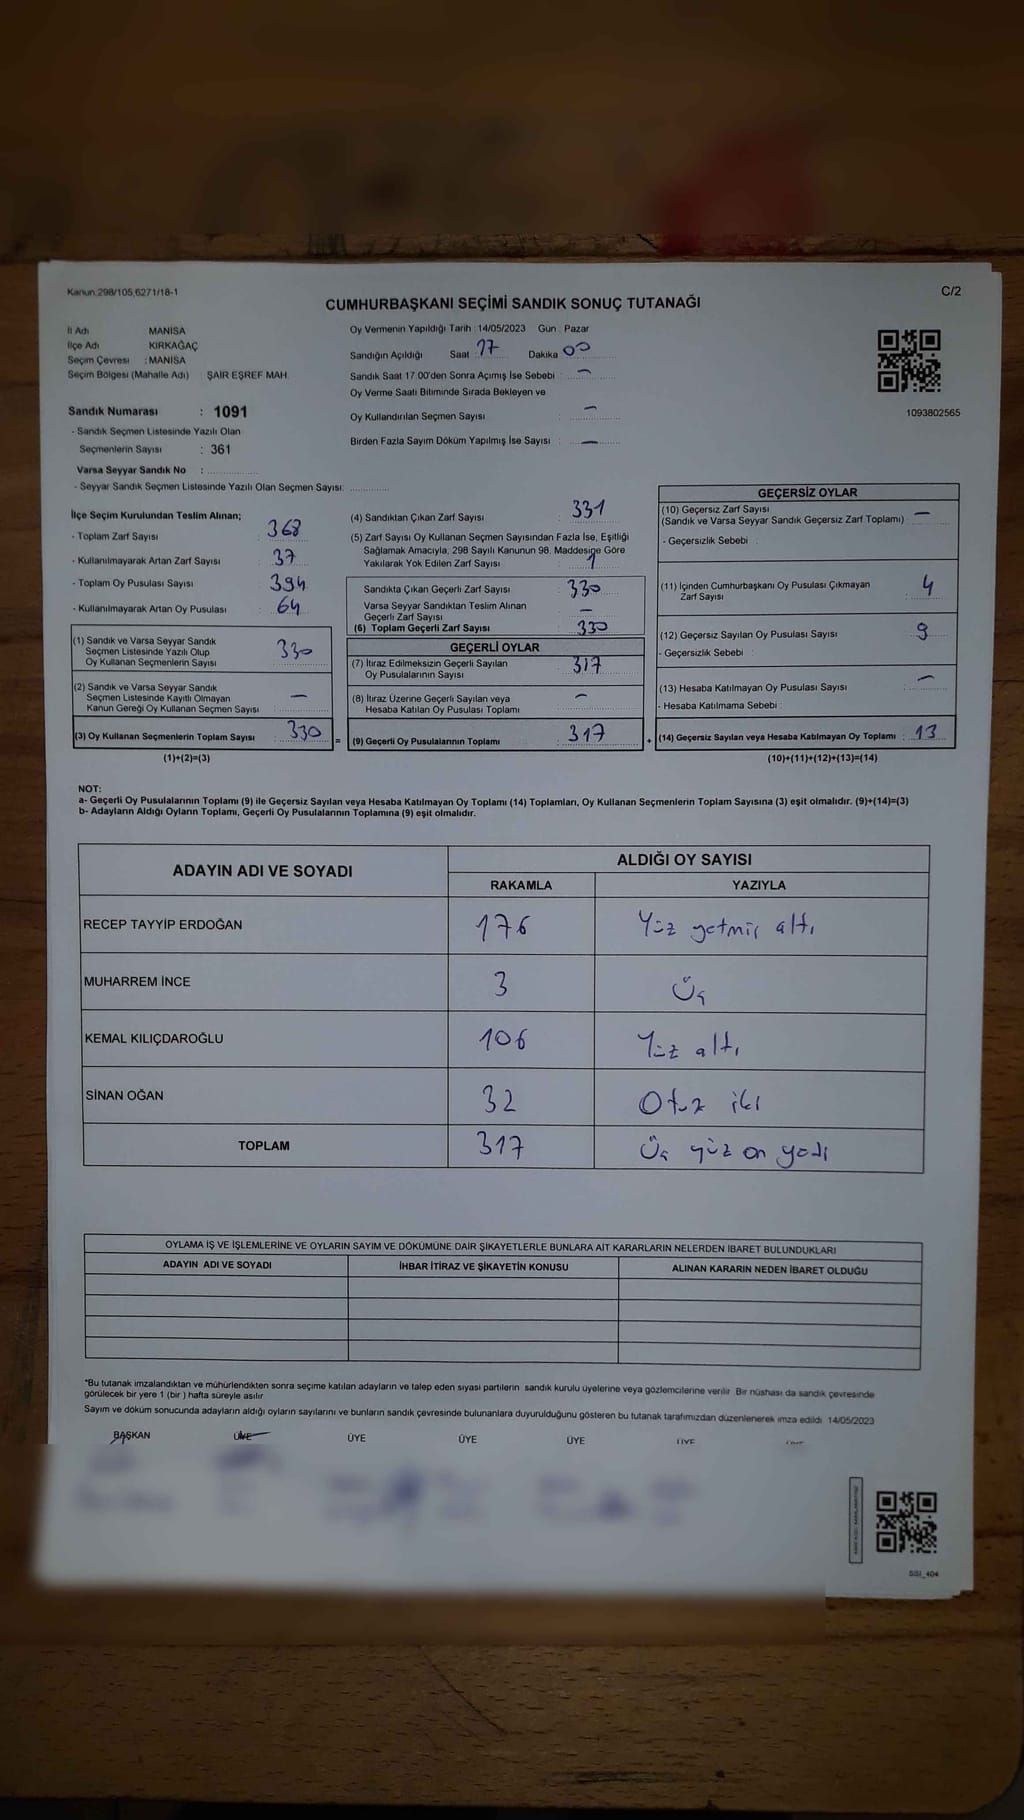 Kanun:298/105,6271/18-1
C/2
CUMHURBAŞKANI SEÇİMİ SANDIK SONUÇ TUTANAĞI
İl Adı MANİSA
İlçe Adı KIRKAĞAÇ
Seçim Çevresi : MANİSA
Seçim Bölgesi (Mahalle Adı) : ŞAİR EŞREF MAH.
Sandık Numarası : 1091
- Sandık Seçmen Listesinde Yazılı Olan
Seçmenlerin Sayısı : 361
Varsa Seyyar Sandık No :
- Seyyar Sandık Seçmen Listesinde Yazılı Olan Seçmen Sayısı:
Oy Vermenin Yapıldığı Tarih : 14/05/2023 Gün : Pazar
Sandığın Açıldığı Saat : 17 Dakika : 00
Sandık Saat 17:00'den Sonra Açımış İse Sebebi : —
Oy Verme Saati Bitiminde Sırada Bekleyen ve
Oy Kullandırılan Seçmen Sayısı : —
Birden Fazla Sayım Döküm Yapılmış İse Sayısı : —
1093802565
İlçe Seçim Kurulundan Teslim Alınan;
- Toplam Zarf Sayısı : 368
- Kullanılmayarak Artan Zarf Sayısı : 37
- Toplam Oy Pusulası Sayısı : 394
- Kullanılmayarak Artan Oy Pusulası : 64
(1) Sandık ve Varsa Seyyar Sandık
Seçmen Listesinde Yazılı Olup
Oy Kullanan Seçmenlerin Sayısı : 330
(2) Sandık ve Varsa Seyyar Sandık
Seçmen Listesinde Kayıtlı Olmayan
Kanun Gereği Oy Kullanan Seçmen Sayısı : —
(3) Oy Kullanan Seçmenlerin Toplam Sayısı : 330
(1)+(2)=(3)
(4) Sandıktan Çıkan Zarf Sayısı : 331
(5) Zarf Sayısı Oy Kullanan Seçmen Sayısından Fazla İse, Eşitliği
Sağlamak Amacıyla, 298 Sayılı Kanunun 98. Maddesine Göre
Yakılarak Yok Edilen Zarf Sayısı : 1
Sandıkta Çıkan Geçerli Zarf Sayısı : 330
Varsa Seyyar Sandıktan Teslim Alınan
Geçerli Zarf Sayısı : —
(6) Toplam Geçerli Zarf Sayısı : 330
GEÇERLİ OYLAR
(7) İtiraz Edilmeksizin Geçerli Sayılan
Oy Pusulalarının Sayısı : 317
(8) İtiraz Üzerine Geçerli Sayılan veya
Hesaba Katılan Oy Pusulası Toplamı : —
= (9) Geçerli Oy Pusulalarının Toplamı : 317
GEÇERSİZ OYLAR
(10) Geçersiz Zarf Sayısı
(Sandık ve Varsa Seyyar Sandık Geçersiz Zarf Toplamı) : —
- Geçersizlik Sebebi :
(11) İçinden Cumhurbaşkanı Oy Pusulası Çıkmayan
Zarf Sayısı : 4
(12) Geçersiz Sayılan Oy Pusulası Sayısı : 9
- Geçersizlik Sebebi :
(13) Hesaba Katılmayan Oy Pusulası Sayısı : —
- Hesaba Katılmama Sebebi :
+ (14) Geçersiz Sayılan veya Hesaba Katılmayan Oy Toplamı : 13
(10)+(11)+(12)+(13)=(14)
NOT:
a- Geçerli Oy Pusulalarının Toplamı (9) ile Geçersiz Sayılan veya Hesaba Katılmayan Oy Toplamı (14) Toplamları, Oy Kullanan Seçmenlerin Toplam Sayısına (3) eşit olmalıdır. (9)+(14)=(3)
b- Adayların Aldığı Oyların Toplamı, Geçerli Oy Pusulalarının Toplamına (9) eşit olmalıdır.
ADAYIN ADI VE SOYADI ALDIĞI OY SAYISI
RAKAMLA YAZIYLA
RECEP TAYYİP ERDOĞAN 176 Yüz yetmiş altı
MUHARREM İNCE 3 Üç
KEMAL KILIÇDAROĞLU 106 Yüz altı
SİNAN OĞAN 32 Otuz iki
TOPLAM 317 Üç yüz on yedi
OYLAMA İŞ VE İŞLEMLERİNE VE OYLARIN SAYIM VE DÖKÜMÜNE DAİR ŞİKAYETLERLE BUNLARA AİT KARARLARIN NELERDEN İBARET BULUNDUKLARI
ADAYIN ADI VE SOYADI İHBAR İTİRAZ VE ŞİKAYETİN KONUSU ALINAN KARARIN NEDEN İBARET OLDUĞU
*Bu tutanak imzalandıktan ve mühürlendikten sonra seçime katılan adayların ve talep eden siyasi partilerin sandık kurulu üyelerine veya gözlemcilerine verilir. Bir nüshası da sandık çevresinde
görülecek bir yere 1 (bir) hafta süreyle asılır.
Sayım ve döküm sonucunda adayların aldığı oyların sayılarını ve bunların sandık çevresinde bulunanlara duyurulduğunu gösteren bu tutanak tarafımızdan düzenlenerek imza edildi. 14/05/2023
BAŞKAN ÜYE ÜYE ÜYE ÜYE ÜYE
SSI_404